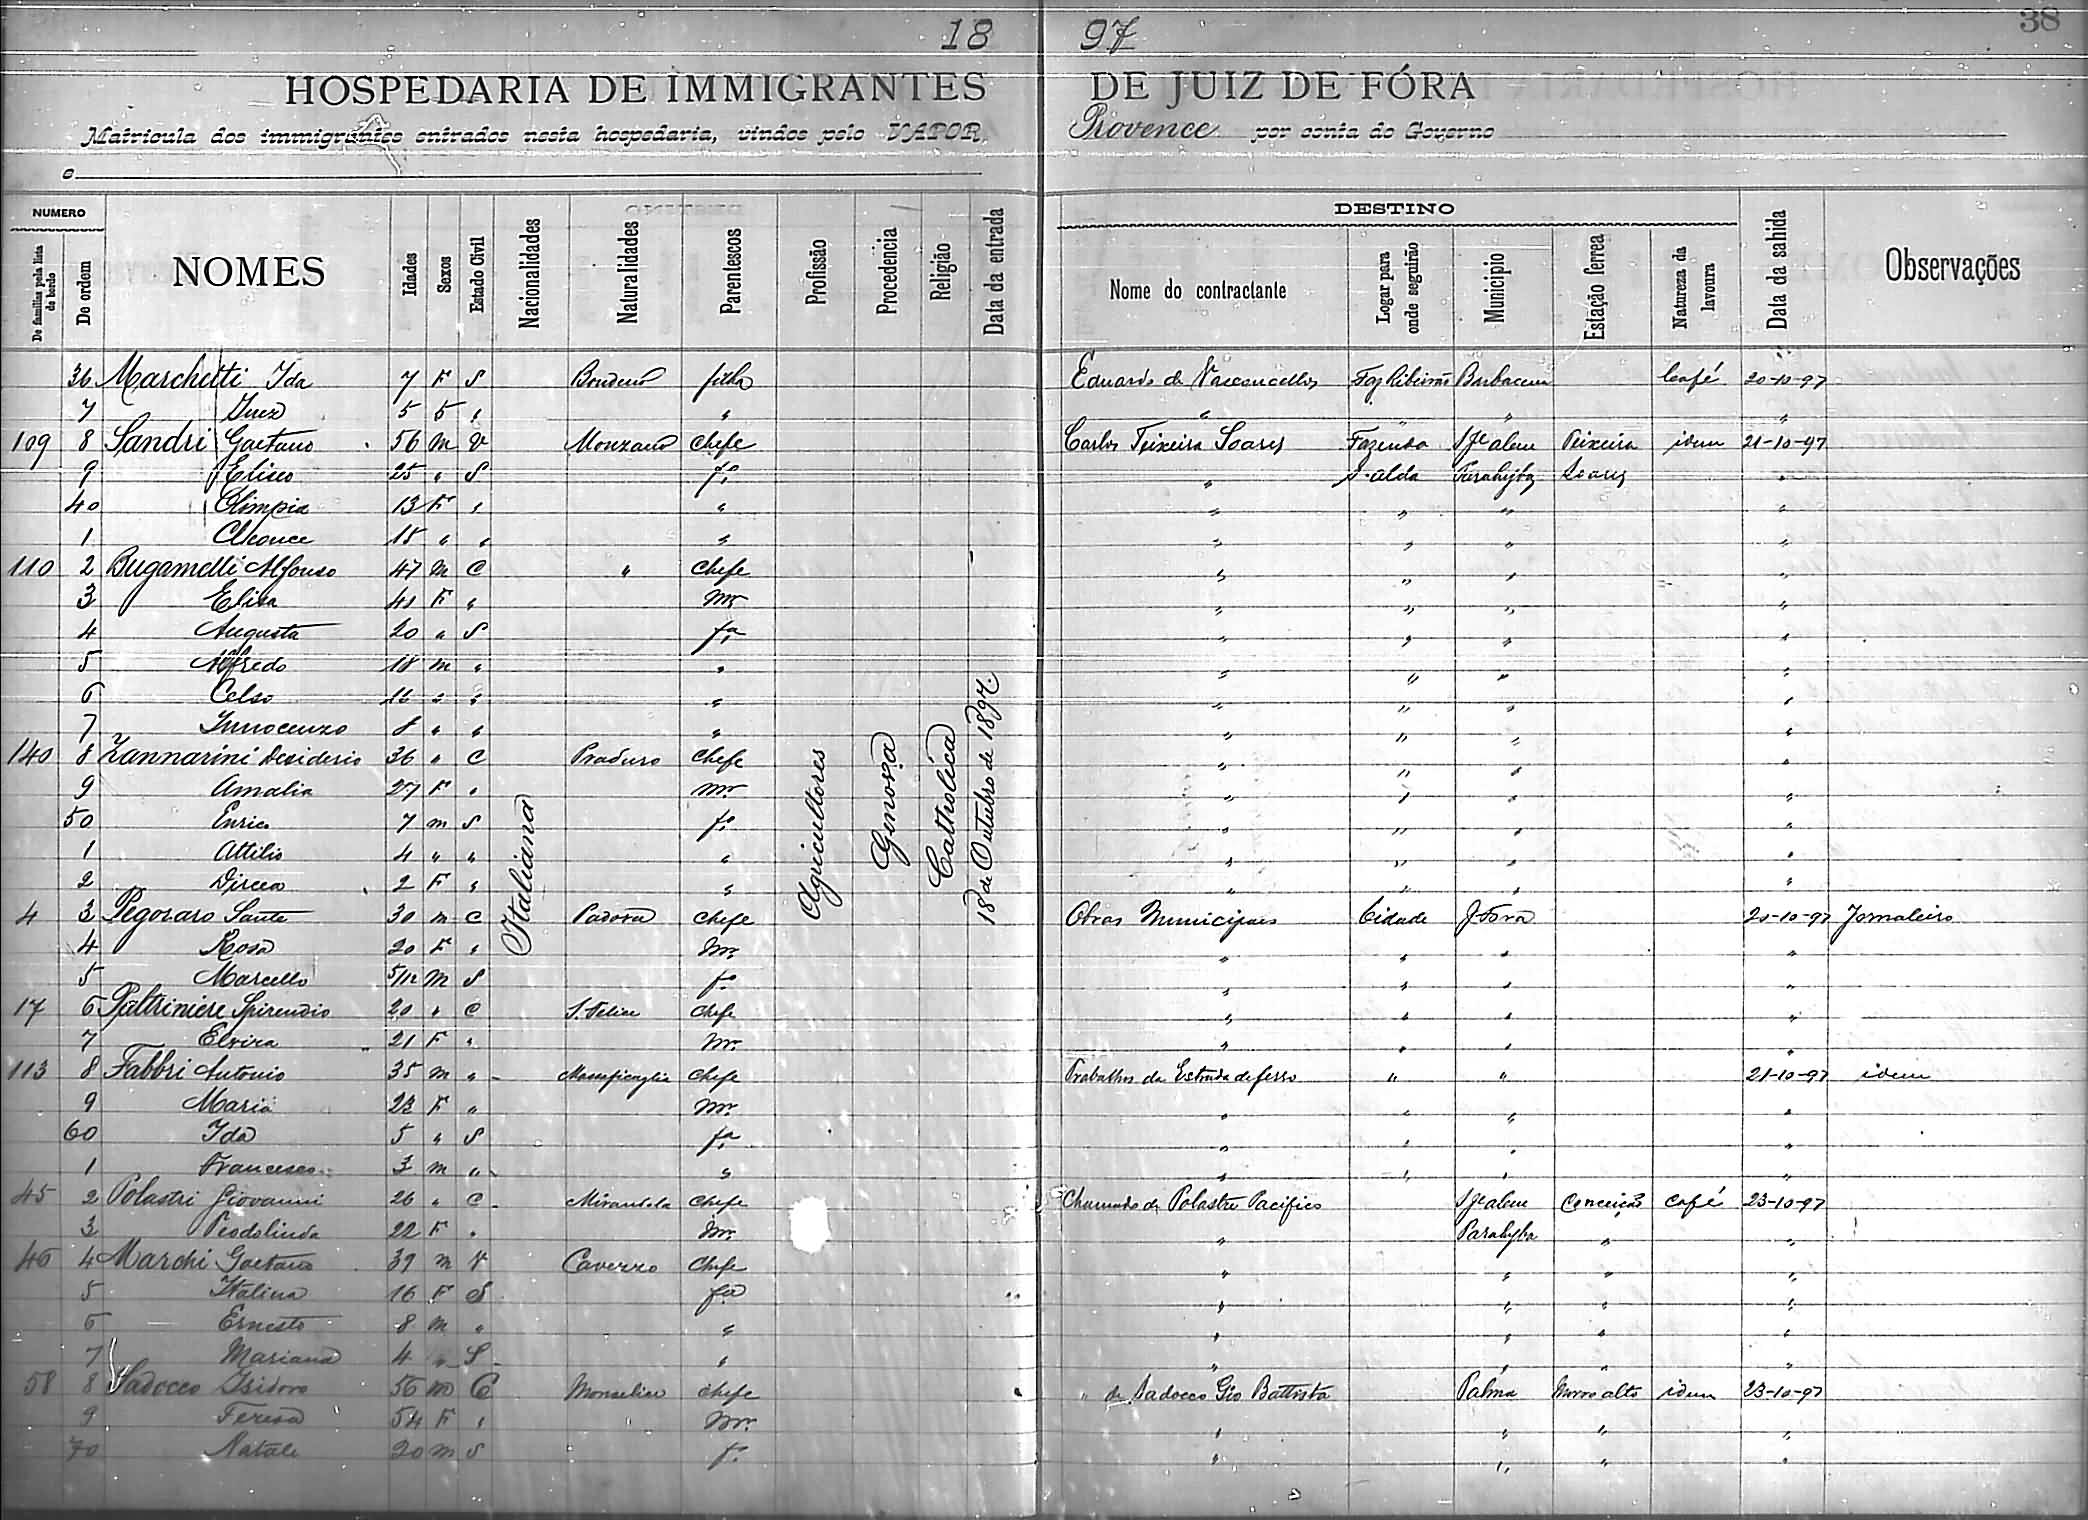 18 97
38
HOSPEDARIA DE IMMIGRANTES DE JUIZ DE FÓRA
Matricula dos immigrantes entrados nesta hospedaria, vindos pelo VAPOR, Provence por conta do Governo
e
NUMERO DESTINO
De familias pela lista de bordo De ordem NOMES Idades Sexos Estado Civil Nacionalidades Naturalidades Parentescos Profissão Procedencia Religião Data da entrada Nome do contractante Logar para onde seguirão Municipio Estação ferrea Natureza da lavoura Data da sahida Observações
Italiana
Agricultores
Genova
Catholica
18 de Outubro de 1897.
36 Marchetti Ida 7 F S filha Eduardo de Vasconcellos Faz Ribeirão Barbacena Café 20-10-97
7 Inez 5 " " " "
109 8 Sandri Gaetano 56 M V Monzano Chefe Carlos Teixeira Soares Fazenda Teixeira idem 21-10-97
9 Eliseo 25 " S fº " S. Alda Parahyba Soares "
40 Olimpia 13 F " " " " " "
1 18 " " " " " " "
110 2 Bugamelli Alfonso 47 M C " Chefe " " " "
3 Elisa 41 F " Mr " " " "
4 Augusta 20 " S fª " " " "
5 Alfredo 18 M " " " " " "
6 Celso 16 " " " " " " "
7 Innocenzo 8 " " " " " " "
140 8 Zannarini Desiderio 36 " C Praduro Chefe " " " "
9 Amalia 27 F " Mr " " " "
50 Enrico 7 M S fº " " " "
1 Attilio 4 " " " " " " "
2 Dircea 2 F " " " " " "
4 3 Pegoraro Sante 30 M C Padova Chefe Obras Municipaes Cidade J. Fora 20-10-97 Jornaleiro
4 Rosa 20 F " Mr. " " " "
5 Marcello 5/m M S fº " " " "
17 6 Paltriniere Spirendio 20 " C S. Felice Chefe " " " "
7 Elvira 21 F " Mr. " " " "
113 8 Fabbri Antonio 35 M " Chefe Trabalhos da Estrada de ferro " " 21-10-97 idem
9 Maria 23 F " Mr. " " " "
60 Ida 5 " S fª " " " "
1 Francesco 3 M " " " " " "
45 2 Polastri Giovanni 26 " C Mirandola Chefe Chamado de Polastre Pacifico Conceição café 23-10-97
3 Teodolinda 22 F " Mr. " Parahyba " "
46 4 Marchi Gaetano 39 M V Cavezzo Chefe " " " "
5 Italina 16 F S fª " " " "
6 Ernesto 8 M " " " " " "
7 Mariana 4 " S " " " " "
58 8 Sadocco Isidoro 56 M C Monselice Chefe " de Sadocco Gio Battista Palma Morro alto idem 23-10-97
9 Teresa 54 F " " Mr. " " " "
70 Natale 20 M S fº " " " "